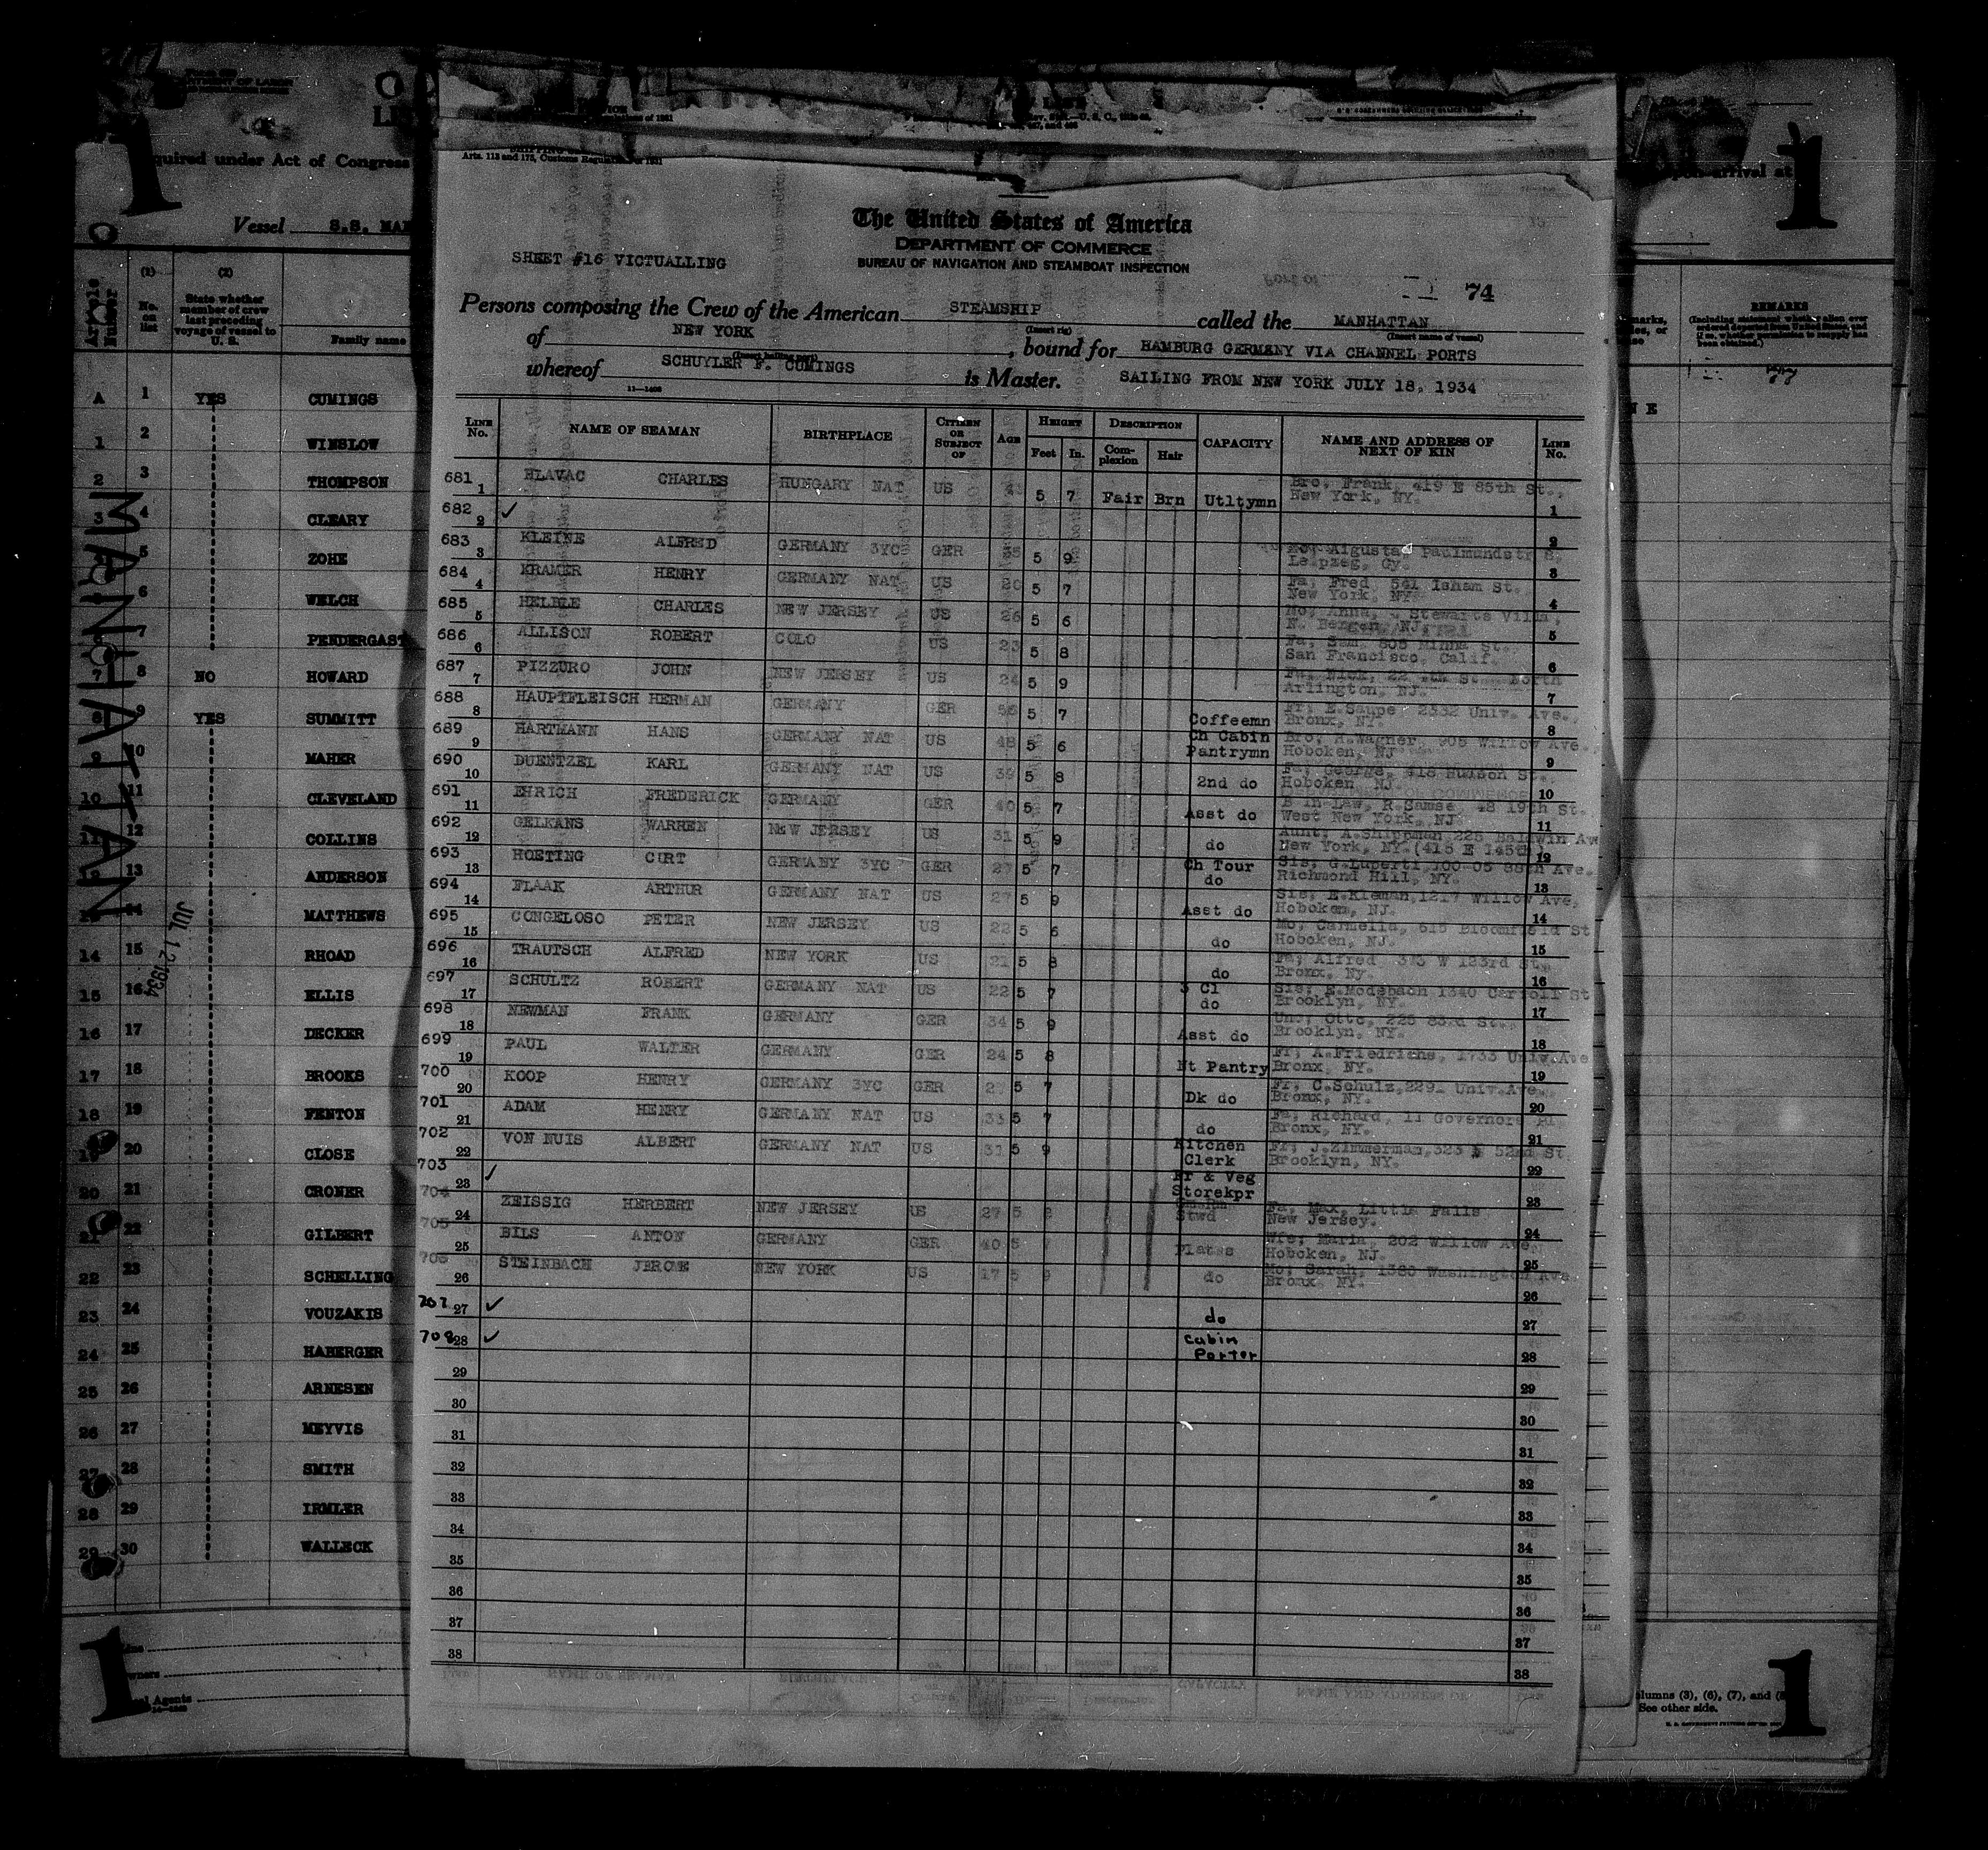 quired under Act of Congress
Vessel S.S. MAN
Article Number
(1) No. on list
(2) State whether member of crew last preceding voyage of vessel to U. S.
Family name
A 1 YES CUMINGS
1 2 WINSLOW
2 3 THOMPSON
3 4 CLEARY
5 ZOHE
6 WELCH
7 PENDERGAST
7 8 NO HOWARD
8 9 YES SUMMITT
9 10 MAHER
10 11 CLEVELAND
11 12 COLLINS
13 ANDERSON
14 MATTHEWS
14 15 RHOAD
15 16 ELLIS
16 17 DECKER
17 18 BROOKS
18 19 FENTON
19 20 CLOSE
20 21 CRONER
21 22 GILBERT
22 23 SCHELLING
23 24 VOUZAKIS
24 25 HABERGER
25 26 ARNESEN
26 27 MEYVIS
27 28 SMITH
28 29 IRMLER
29 30 WALLECK
MANHATTAN
JUL 12 1934
1
1
1
1
Arts. 113 and 173, Customs Regulations of 1931
The United States of America
DEPARTMENT OF COMMERCE
BUREAU OF NAVIGATION AND STEAMBOAT INSPECTION
SHEET #16 VICTUALLING
74
Persons composing the Crew of the American STEAMSHIP called the MANHATTAN
(Insert rig) (Insert name of vessel)
of NEW YORK, bound for HAMBURG GERMANY VIA CHANNEL PORTS
(Insert hailing port)
whereof SCHUYLER F. CUMINGS is Master. SAILING FROM NEW YORK JULY 18, 1934
11—1408
LINE No. NAME OF SEAMAN BIRTHPLACE CITIZEN OR SUBJECT OF AGE HEIGHT Feet In. DESCRIPTION Complexion Hair CAPACITY NAME AND ADDRESS OF NEXT OF KIN LINE No.
681 1 HLAVAC CHARLES HUNGARY NAT US 5 7 Fair Brn Utltymn Bro, Frank, 419 E 85th St., New York, NY. 1
682 2 ✓ 2
683 3 KLEINE ALFRED GERMANY 3YC GER 5 9 Leipzeg, Gy. 3
684 4 KRAMER HENRY GERMANY NAT US 20 5 7 Fa, Fred 541 Isham St. New York, NY. 4
685 5 HELBLE CHARLES NEW JERSEY US 26 5 6 Mo, Anna, Stewarts Villa, N. Bergen, NJ. 5
686 6 ALLISON ROBERT COLO US 23 5 8 Fa, Sam, 605 Minna St., San Francisco, Calif. 6
687 7 PIZZURO JOHN NEW JERSEY US 24 5 9 North Arlington, NJ. 7
688 8 HAUPTFLEISCH HERMAN GERMANY GER 56 5 7 Coffeemn Fr; E.Saupe 2332 Univ. Ave., Bronx, NY. 8
689 9 HARTMANN HANS GERMANY NAT US 48 5 6 Ch Cabin Pantrymn Bro; H.Wagner, 905 Willow Ave., Hoboken, NJ 9
690 10 DUENTZEL KARL GERMANY NAT US 39 5 8 2nd do Fa; George, 418 Hudson St., Hoboken, NJ. 10
691 11 EHRICH FREDERICK GERMANY GER 40 5 7 Asst do B in-Law, R.Samse, 48 19th St. West New York, NJ 11
692 12 GELKANS WARREN NEW JERSEY US 31 5 9 do Aunt; A.Shippman 225 Baldwin Av New York, NY.(415 E 145th) 12
693 13 HOETING CURT GERMANY 3YC GER 27 5 7 Ch Tour do Sis; G.Luperti, 100-05 88th Ave. Richmond Hill, NY. 13
694 14 FLAAK ARTHUR GERMANY NAT US 27 5 9 Asst do Sis; E.Kleman, 1217 Willow Ave, Hoboken, NJ. 14
695 15 CONGELOSO PETER NEW JERSEY US 22 5 6 do Mo; Carmella, 615 Bloomfield St Hoboken, NJ. 15
696 16 TRAUTSCH ALFRED NEW YORK US 21 5 8 do Fa; Alfred 313 W 123rd St. Bronx, Ny. 16
697 17 SCHULTZ ROBERT GERMANY NAT US 22 5 7 3 Cl do Sis; E.Modebach 1340 Carroll St Brooklyn, NY. 17
698 18 NEWMAN FRANK GERMANY GER 34 5 9 Asst do Unc; Otto, 226 83rd St., Brooklyn, NY. 18
699 19 PAUL WALTER GERMANY GER 24 5 8 Nt Pantry Fr; A.Friedrichs, 1733 Univ.Ave Bronx, NY. 19
700 20 KOOP HENRY GERMANY 3YC GER 27 5 7 Dk do Fr; C.Schulz, Univ.Ave. Bronx, NY. 20
701 21 ADAM HENRY GERMANY NAT US 33 5 7 do Fa; Richard, 11 Governors Pl Bronx, NY. 21
702 22 VON NUIS ALBERT GERMANY NAT US 31 5 9 Kitchen Clerk Fr; J.Zimmerman, 323 E 52nd St. Brooklyn, NY. 22
703 23 ✓ Fr & Veg Storekpr 23
704 24 ZEISSIG HERBERT NEW JERSEY US 27 5 Stwd Fa, Max, Little Falls New Jersey. 24
705 25 BILS ANTON GERMANY GER 40 5 7 Plates Wfe; Maria, 202 Willow Ave. Hoboken, NJ. 25
706 26 STEINBACH JEROME NEW YORK US 17 5 9 do Mo; Sarah, 1380 Washington Ave. Bronx NY. 26
707 27 ✓ do 27
708 28 ✓ Cabin Porter 28
29 29
30 30
31 31
32 32
33 33
34 34
35 35
36 36
37 37
38 38
upon arrival at
REMARKS
(Including statement whether alien ever ordered deported from United States, and if so, whether permission to reapply has been obtained.)
77
columns (3), (6), (7), and (8
See other side.